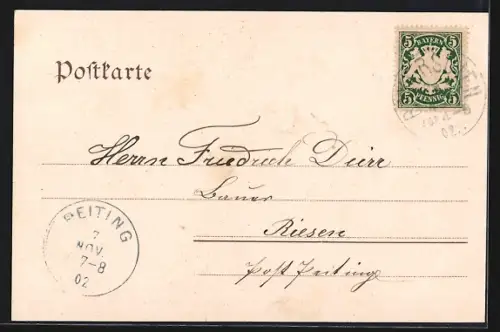 BAYERN
5 5
5 PFENNIG 5
Postkarte
Herrn Friedrich Dürr
Bauer
Riesen
Post Peiting
PEITING
7
NOV.
7-8
02